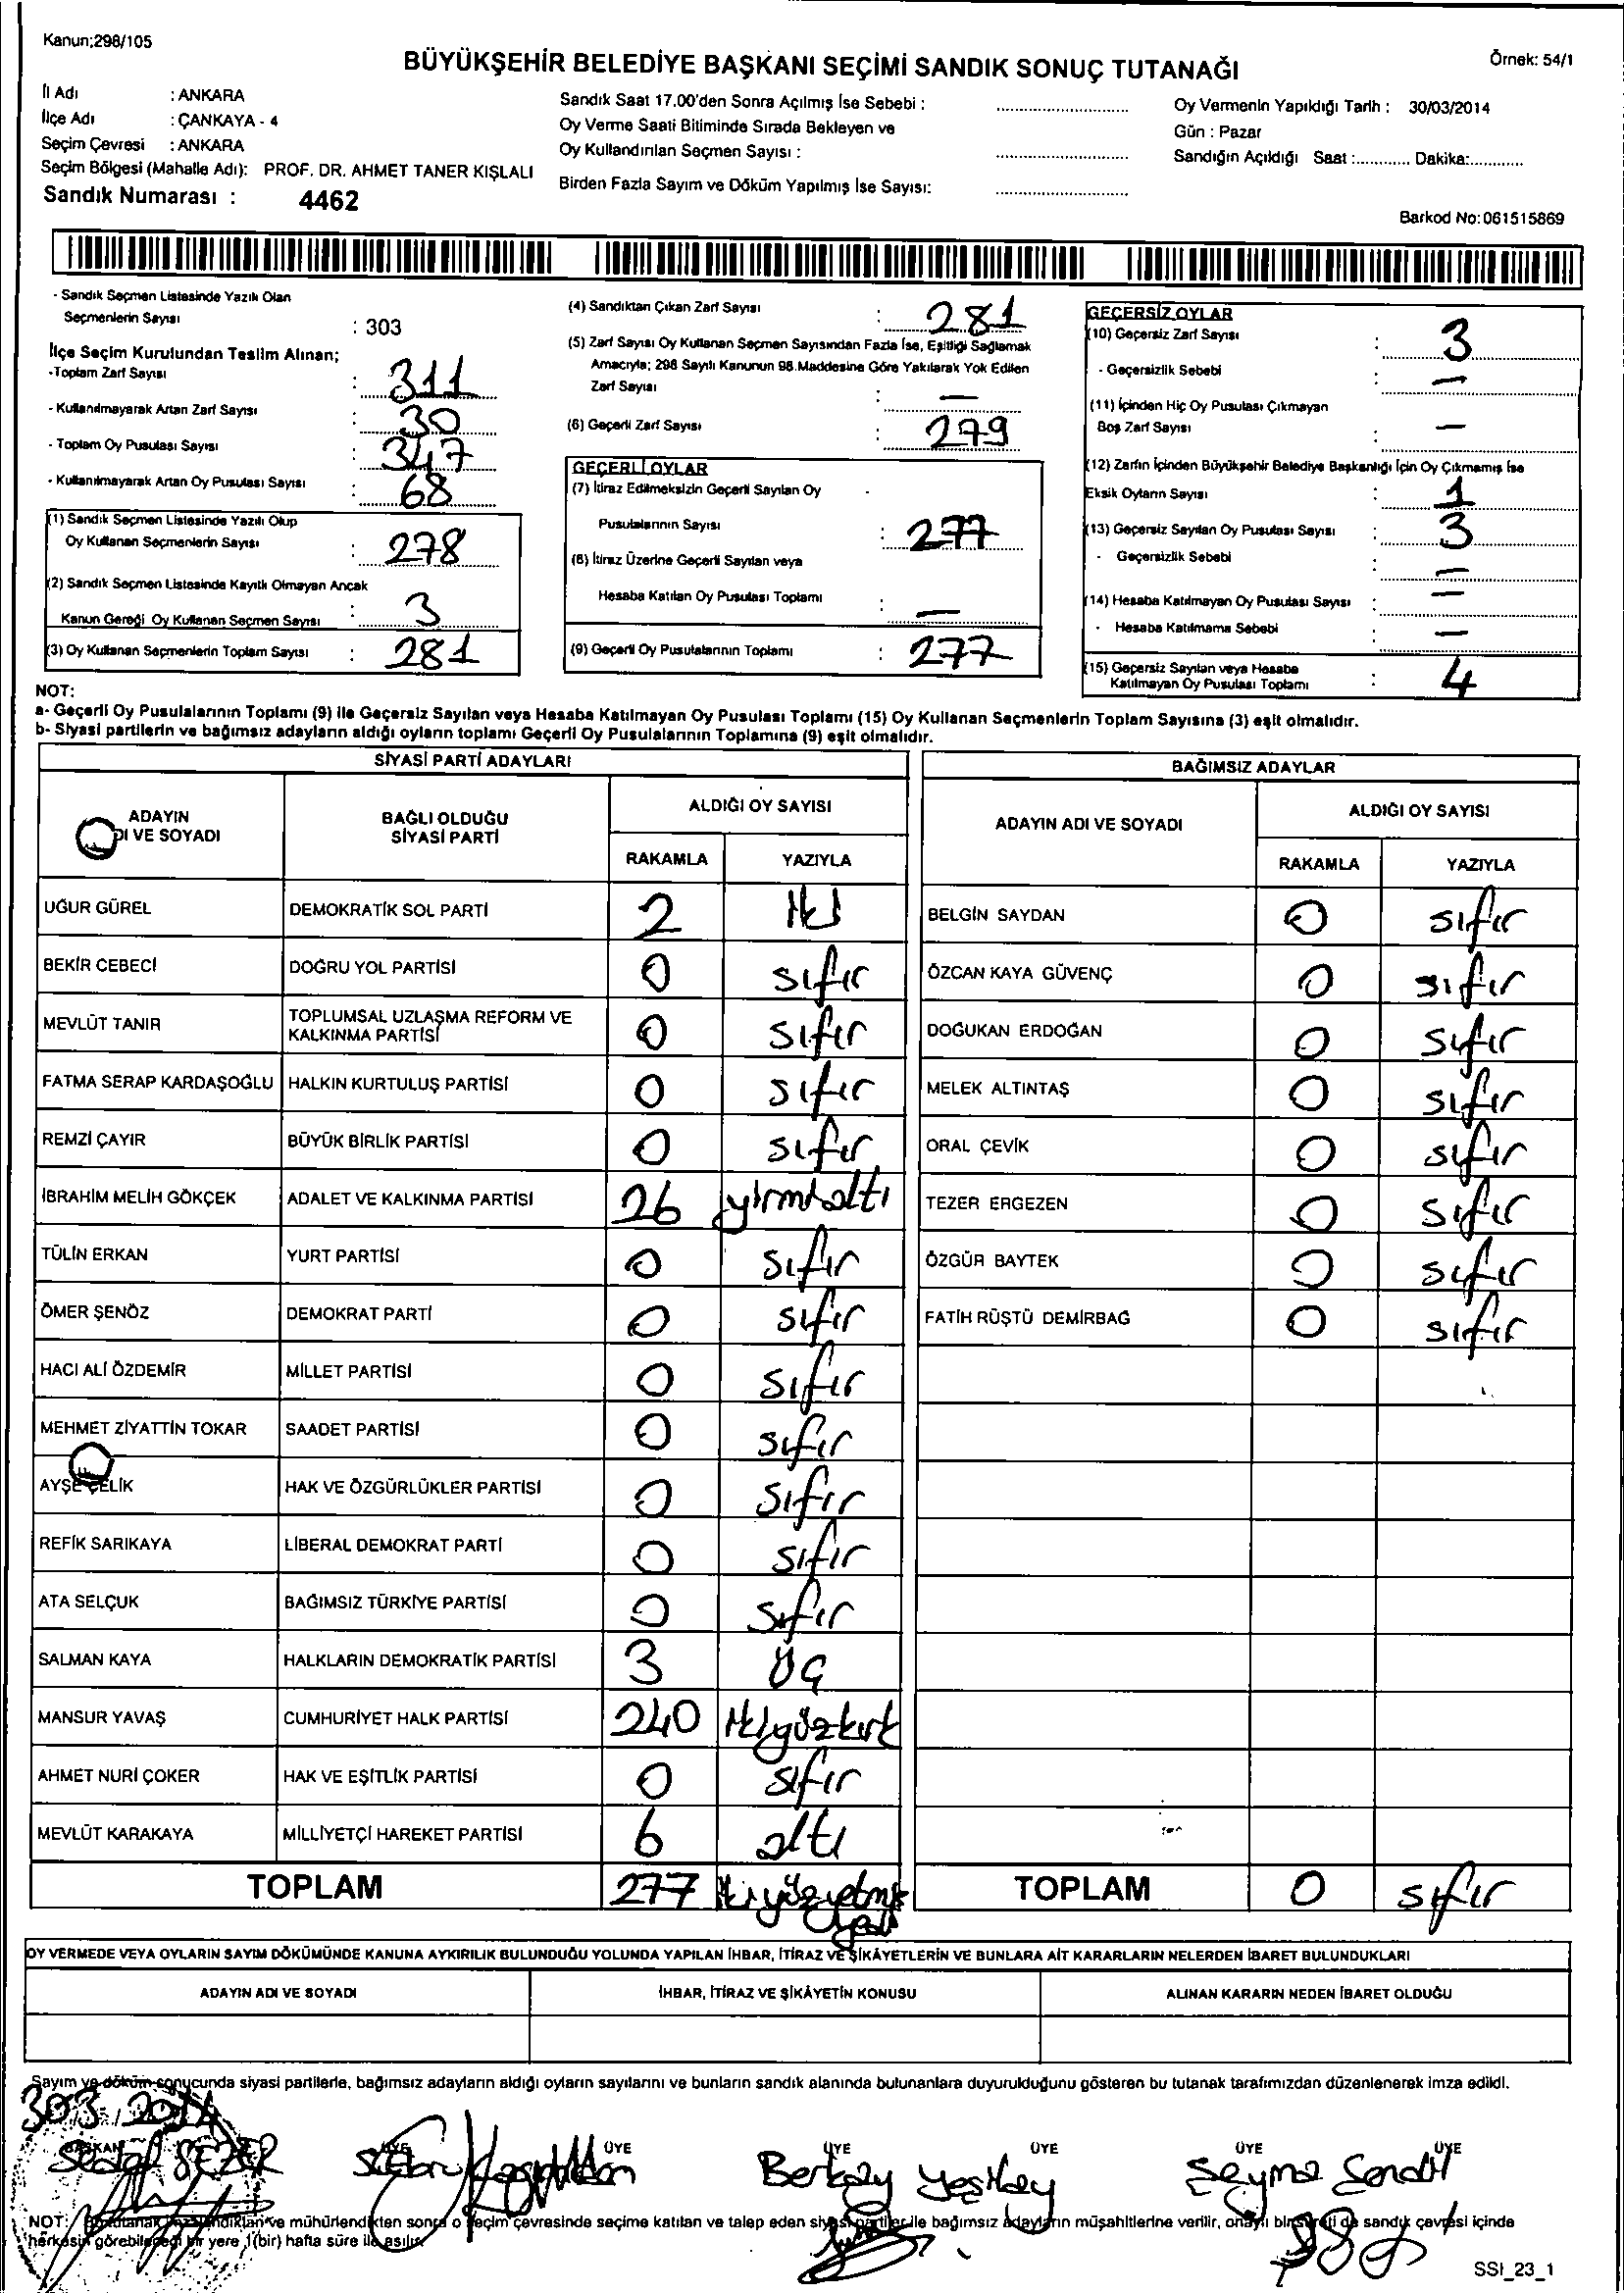 Kanun:298/105
BÜYÜKŞEHİR BELEDİYE BAŞKANI SEÇİMİ SANDIK SONUÇ TUTANAĞI
Örnek: 54/1
İl Adı : ANKARA
İlçe Adı : ÇANKAYA - 4
Seçim Çevresi : ANKARA
Seçim Bölgesi (Mahalle Adı): PROF. DR. AHMET TANER KIŞLALI
Sandık Numarası : 4462
Sandık Saat 17.00'den Sonra Açılmış İse Sebebi :
Oy Verme Saati Bitiminde Sırada Bekleyen ve
Oy Kullandırılan Seçmen Sayısı :
Birden Fazla Sayım ve Döküm Yapılmış İse Sayısı:
Oy Vermenin Yapıldığı Tarih : 30/03/2014
Gün : Pazar
Sandığın Açıldığı Saat :............ Dakika:............
Barkod No:061515869
- Sandık Seçmen Listesinde Yazılı Olan
Seçmenlerin Sayısı : 303
İlçe Seçim Kurulundan Teslim Alınan;
-Toplam Zarf Sayısı : 311
- Kullanılmayarak Artan Zarf Sayısı : 30
- Toplam Oy Pusulası Sayısı : 347
- Kullanılmayarak Artan Oy Pusulası Sayısı : 68
(1) Sandık Seçmen Listesinde Yazılı Olup
Oy Kullanan Seçmenlerin Sayısı : 278
(2) Sandık Seçmen Listesinde Kayıtlı Olmayan Ancak
Kanun Gereği Oy Kullanan Seçmen Sayısı : 3
(3) Oy Kullanan Seçmenlerin Toplam Sayısı : 281
(4) Sandıktan Çıkan Zarf Sayısı : 281
(5) Zarf Sayısı Oy Kullanan Seçmen Sayısından Fazla İse, Eşitliği Sağlamak
Amacıyla; 298 Sayılı Kanunun 98.Maddesine Göre Yakılarak Yok Edilen
Zarf Sayısı : —
(6) Geçerli Zarf Sayısı : 279
GEÇERLİ OYLAR
(7) İtiraz Edilmeksizin Geçerli Sayılan Oy
Pusulalarının Sayısı : 277
(8) İtiraz Üzerine Geçerli Sayılan veya
Hesaba Katılan Oy Pusulası Toplamı : —
(9) Geçerli Oy Pusulalarının Toplamı : 277
GEÇERSİZ OYLAR
(10) Geçersiz Zarf Sayısı : 3
- Geçersizlik Sebebi : —
(11) İçinden Hiç Oy Pusulası Çıkmayan
Boş Zarf Sayısı : —
(12) Zarfın İçinden Büyükşehir Belediye Başkanlığı İçin Oy Çıkmamış İse
Eksik Oyların Sayısı : 1
(13) Geçersiz Sayılan Oy Pusulası Sayısı : 3
- Geçersizlik Sebebi : —
(14) Hesaba Katılmayan Oy Pusulası Sayısı : —
- Hesaba Katılmama Sebebi : —
(15) Geçersiz Sayılan veya Hesaba
Katılmayan Oy Pusulası Toplamı : 4
NOT:
a- Geçerli Oy Pusulalarının Toplamı (9) ile Geçersiz Sayılan veya Hesaba Katılmayan Oy Pusulası Toplamı (15) Oy Kullanan Seçmenlerin Toplam Sayısına (3) eşit olmalıdır.
b- Siyasi partilerin ve bağımsız adayların aldığı oyların toplamı Geçerli Oy Pusulalarının Toplamına (9) eşit olmalıdır.
SİYASİ PARTİ ADAYLARI
ADAYIN
DI VE SOYADI
BAĞLI OLDUĞU
SİYASİ PARTİ
ALDIĞI OY SAYISI
RAKAMLA YAZIYLA
UĞUR GÜREL DEMOKRATİK SOL PARTİ 2 iki
BEKİR CEBECİ DOĞRU YOL PARTİSİ 0 sıfır
MEVLÜT TANIR TOPLUMSAL UZLAŞMA REFORM VE
KALKINMA PARTİSİ 0 sıfır
FATMA SERAP KARDAŞOĞLU HALKIN KURTULUŞ PARTİSİ 0 sıfır
REMZİ ÇAYIR BÜYÜK BİRLİK PARTİSİ 0 sıfır
İBRAHİM MELİH GÖKÇEK ADALET VE KALKINMA PARTİSİ 26 yirmialtı
TÜLİN ERKAN YURT PARTİSİ 0 sıfır
ÖMER ŞENÖZ DEMOKRAT PARTİ 0 sıfır
HACI ALİ ÖZDEMİR MİLLET PARTİSİ 0 sıfır
MEHMET ZİYATTİN TOKAR SAADET PARTİSİ 0 sıfır
AYŞE ÇELİK HAK VE ÖZGÜRLÜKLER PARTİSİ 0 sıfır
REFİK SARIKAYA LİBERAL DEMOKRAT PARTİ 0 sıfır
ATA SELÇUK BAĞIMSIZ TÜRKİYE PARTİSİ 0 sıfır
SALMAN KAYA HALKLARIN DEMOKRATİK PARTİSİ 3 üç
MANSUR YAVAŞ CUMHURİYET HALK PARTİSİ 240 ikiyüzkırk
AHMET NURİ ÇOKER HAK VE EŞİTLİK PARTİSİ 0 sıfır
MEVLÜT KARAKAYA MİLLİYETÇİ HAREKET PARTİSİ 6 altı
TOPLAM 277 ikiyüzyetmiş
yedi
BAĞIMSIZ ADAYLAR
ADAYIN ADI VE SOYADI
ALDIĞI OY SAYISI
RAKAMLA YAZIYLA
BELGİN SAYDAN 0 sıfır
ÖZCAN KAYA GÜVENÇ 0 sıfır
DOĞUKAN ERDOĞAN 0 sıfır
MELEK ALTINTAŞ 0 sıfır
ORAL ÇEVİK 0 sıfır
TEZER ERGEZEN 0 sıfır
ÖZGÜR BAYTEK 0 sıfır
FATİH RÜŞTÜ DEMİRBAĞ 0 sıfır
TOPLAM 0 sıfır
OY VERMEDE VEYA OYLARIN SAYIM DÖKÜMÜNDE KANUNA AYKIRILIK BULUNDUĞU YOLUNDA YAPILAN İHBAR, İTİRAZ VE ŞİKÂYETLERİN VE BUNLARA AİT KARARLARIN NELERDEN İBARET BULUNDUKLARI
ADAYIN ADI VE SOYADI İHBAR, İTİRAZ VE ŞİKÂYETİN KONUSU ALINAN KARARIN NEDEN İBARET OLDUĞU
Sayım ve döküm sonucunda siyasi partilerle, bağımsız adayların aldığı oyların sayılarını ve bunların sandık alanında bulunanlara duyurulduğunu gösteren bu tutanak tarafımızdan düzenlenerek imza edildi.
BAŞKAN ÜYE ÜYE ÜYE ÜYE ÜYE ÜYE
SEZER Berkay Yeşilay Şeyma
NOT: Bu tutanak imzalandıktan ve mühürlendikten sonra o seçim çevresinde seçime katılan ve talep eden siyasi partiler ile bağımsız adayların müşahitlerine verilir, onaylı bir sureti de sandık çevresi içinde
herkesin görebileceği bir yere 1(bir) hafta süre ile asılır.
SSI_23_1